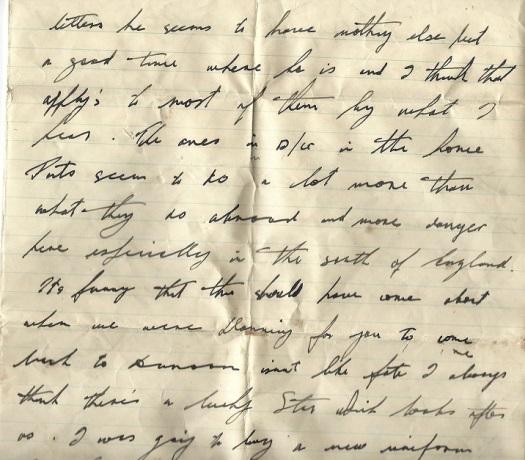 letters he seems to have nothing else but
a good time where he is and I think that
apply's to most of them by what I
hear. The ones in D/cs in the home
Ports seem to do a lot more than
what they do abroad and more danger
here especially in the south of England.
It's funny that this should have come about
when we were planning for you to come
back to Dunoon isn't like fate I always
think there's a lucky Star which looks after
us. I was going to buy a new uniform